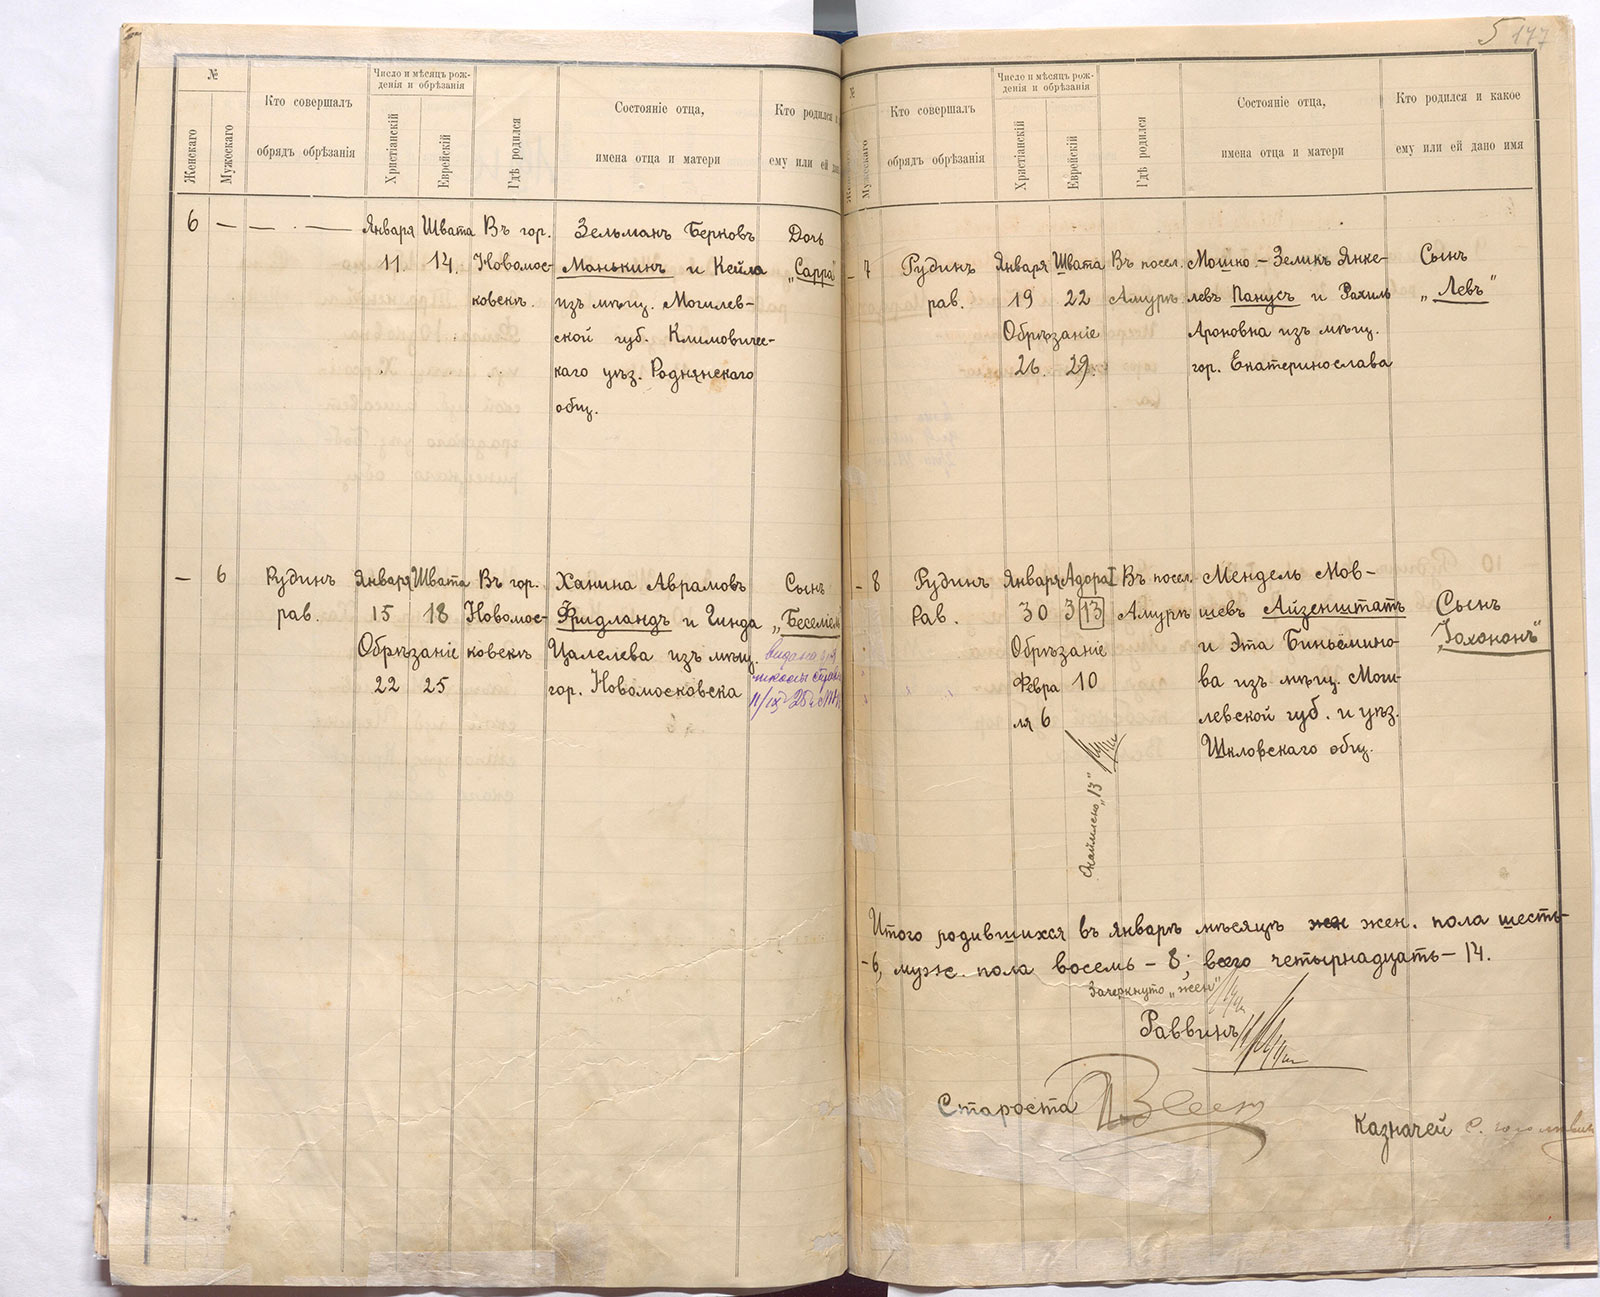 5 177
№
Женскаго
Мужескаго
Кто совершалъ
обрядъ обрѣзанія
Число и мѣсяцъ рож-
денія и обрѣзанія
Христіанскій
Еврейскій
Гдѣ родился
Состояніе отца,
имена отца и матери
Кто родился и
ему или ей дано
6 — — . — Января Швата Въ гор. Зельманъ Берковъ Дочь
11 14. Новомос- Манькинъ и Кейла „Сарра"
ковскѣ. изъ мѣщ. Могилев-
ской губ. Климовичес-
каго уѣз. Роднянскаго
общ.
— 6 Рудинъ Января Швата Въ гор. Ханина Аврамовъ Сынъ
рав. 15 18 Новомос- Фридландъ и Гинда
Обрѣзаніе ковскѣ Цалелева изъ мѣщ.
22 25 гор. Новомосковска
№
Мужескаго
Кто совершалъ
обрядъ обрѣзанія
Число и мѣсяцъ рож-
денія и обрѣзанія
Христіанскій
Еврейскій
Гдѣ родился
Состояніе отца,
имена отца и матери
Кто родился и какое
ему или ей дано имя
– 7 Рудинъ Января Швата Въ посел. Мошко-Зеликъ Янке- Сынъ
рав. 19 22 Амурѣ левъ Панусъ и Рахиль „Левъ"
Обрѣзаніе Ароновна изъ мѣщ.
26. 29. гор. Екатеринослава
– 8 Рудинъ Января Адора I Въ посел. Мендель Мов-
Рав. 30 3 13 Амурѣ шевъ Айзенштатъ Сынъ
Обрѣзаніе и Эта Биньёмино-
Февра 10 ва изъ мѣщ. Моги-
ля 6 левской губ. и уѣз.
Шкловскаго общ.
„13"
Итого родившихся въ январѣ мѣсяцѣ жен жен. пола шесть-
-6, муж. пола восемь – 8; всего четырнадцать – 14.
Зачеркнуто „жен"
Раввинъ
Староста
Казначей